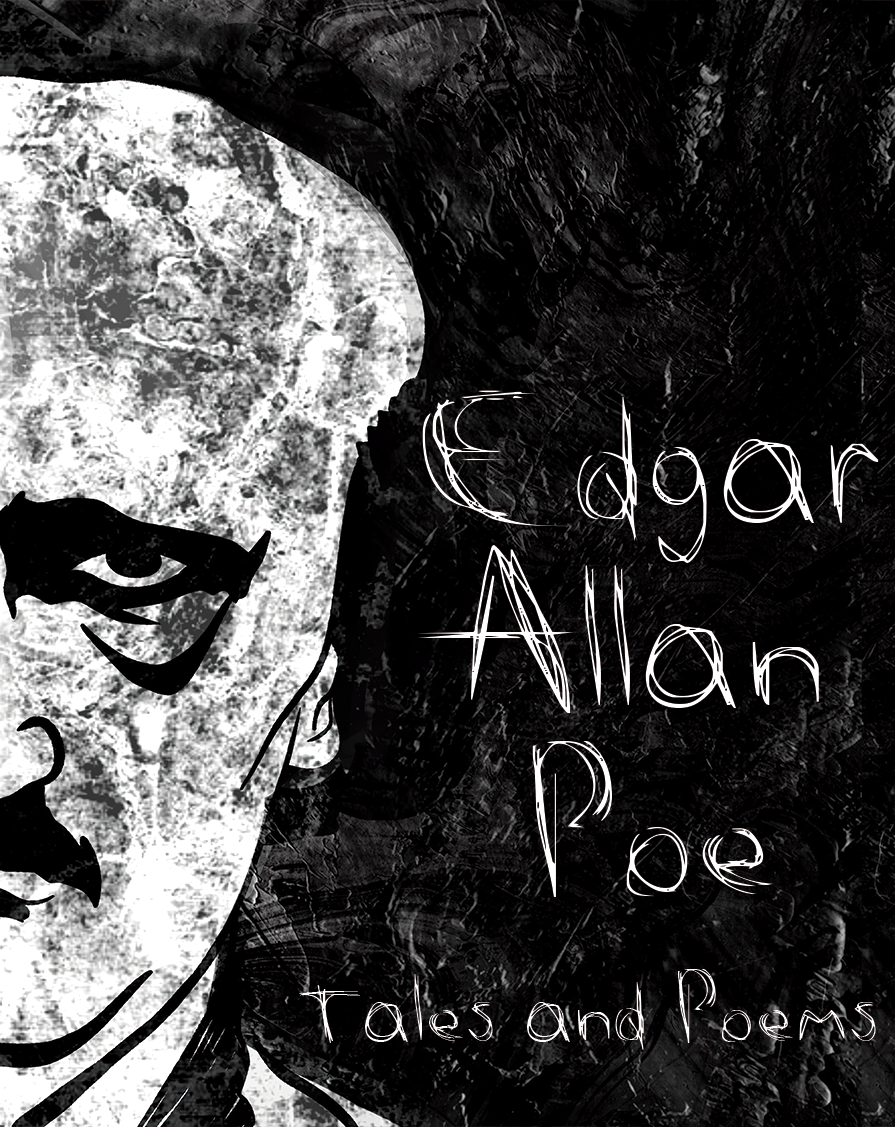 Edgar
Allan
Poe
Tales and Poems